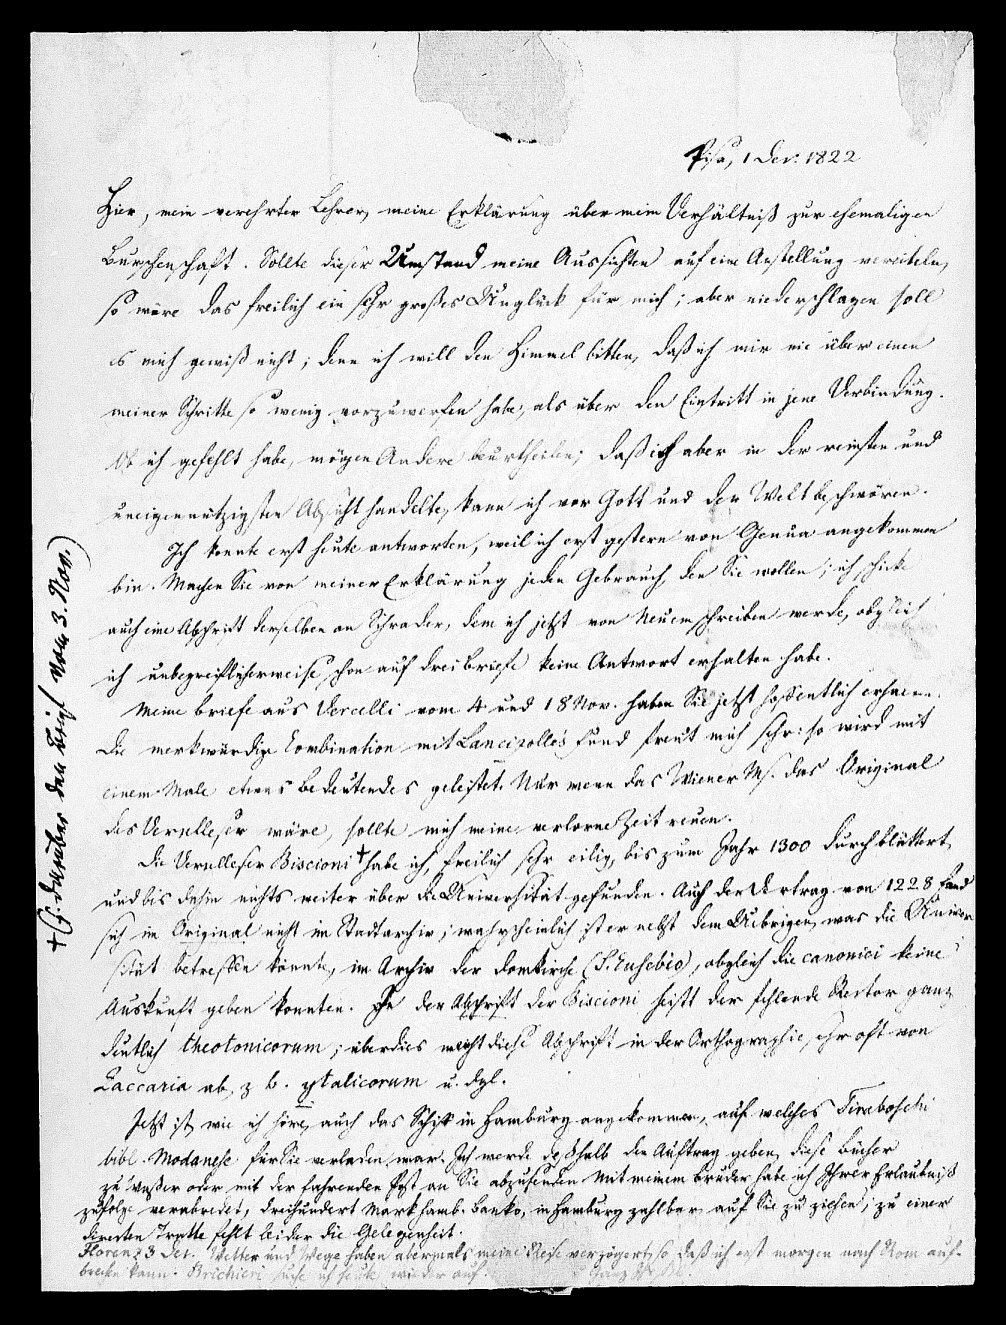 Pisa, 1 Dec. 1822
Hier, mein verehrter Lehrer, meine Erklärung über mein Verhältniß zur ehemaligen
Burschenschaft. Sollte dieser Umstand meine Aussichten auf eine Anstellung vereiteln,
so wäre das freilich ein sehr großes Unglück für mich; aber niederschlagen soll
es mich gewiß nicht; denn ich will den Himmel bitten, daß ich mir nie über einen
meiner Schritte so wenig vorzuwerfen habe, als über den Eintritt in jene Verbindung.
Ob ich gefehlt habe, mögen Andere beurtheilen; daß ich aber in der reinsten und
uneigennützigsten Absicht handelte, kann ich vor Gott und der Welt beschwören.
Ich konnte erst heute antworten, weil ich erst gestern von Genua angekommen
bin. Machen Sie von meiner Erklärung jeden Gebrauch, den Sie wollen; ich schicke
auch eine Abschrift derselben an Schrader, dem ich jetzt von Neuem schreiben werde, obgleich
ich unbegreiflicherweise schon auf drei Briefe keine Antwort erhalten habe.
Meine Briefe aus Vercelli vom 4 und 18 Nov. haben Sie jetzt hoffentlich erhalten.
Die merkwürdige Combination mit Lancizolle's Fund freut mich sehr: so wird mit
einem Male etwas Bedeutendes geleistet. Nur wenn das Wiener Ms. das Original
des Verceller wäre, sollte mich meine verlorne Zeit reuen.
Die Verceller Biscioni † habe ich, freilich sehr eilig, bis zum Jahr 1300 durchblättert,
und bis dahin nichts weiter über die Universität gefunden. Auch der Vertrag von 1228 fand
sich im Original nicht im Stadtarchiv; wahrscheinlich ist er nebst dem Uebrigen, was die Univer
sität betreffen könnte, im Archiv der Domkirche (S. Eusebio), obgleich die canonici keine
Auskunft geben konnten. In der Abschrift der Biscioni heißt der fehlende Rector ganz
deutlich theotonicorum; überdies weicht diese Abschrift in der Orthographie sehr oft von
Zaccaria ab, z. B. ytalicorum u. dgl.
Jetzt ist, wie ich höre, auch das Schiff in Hamburg angekommen, auf welches Tiraboschi
bibl. Modanese für Sie verladen war. Ich werde deßhalb den Auftrag geben, diese Bücher
zu Wasser oder mit der fahrenden Post an Sie abzusenden. Mit meinem Bruder habe ich Ihrer Erlaubniß
zufolge verabredet, dreihundert Mark hamb. Banko, in Hamburg zahlbar, auf Sie zu ziehen; zu einer
directen Tratte fehlt leider die Gelegenheit.
Florenz 3 Dec. Wetter und Wege haben abermals meine Reise verzögert, so daß ich erst morgen nach Rom auf-
brechen kann. Brichieri suche ich heute wieder auf. Ganz
† (s. darüber den Brief vom 3. Nov.)